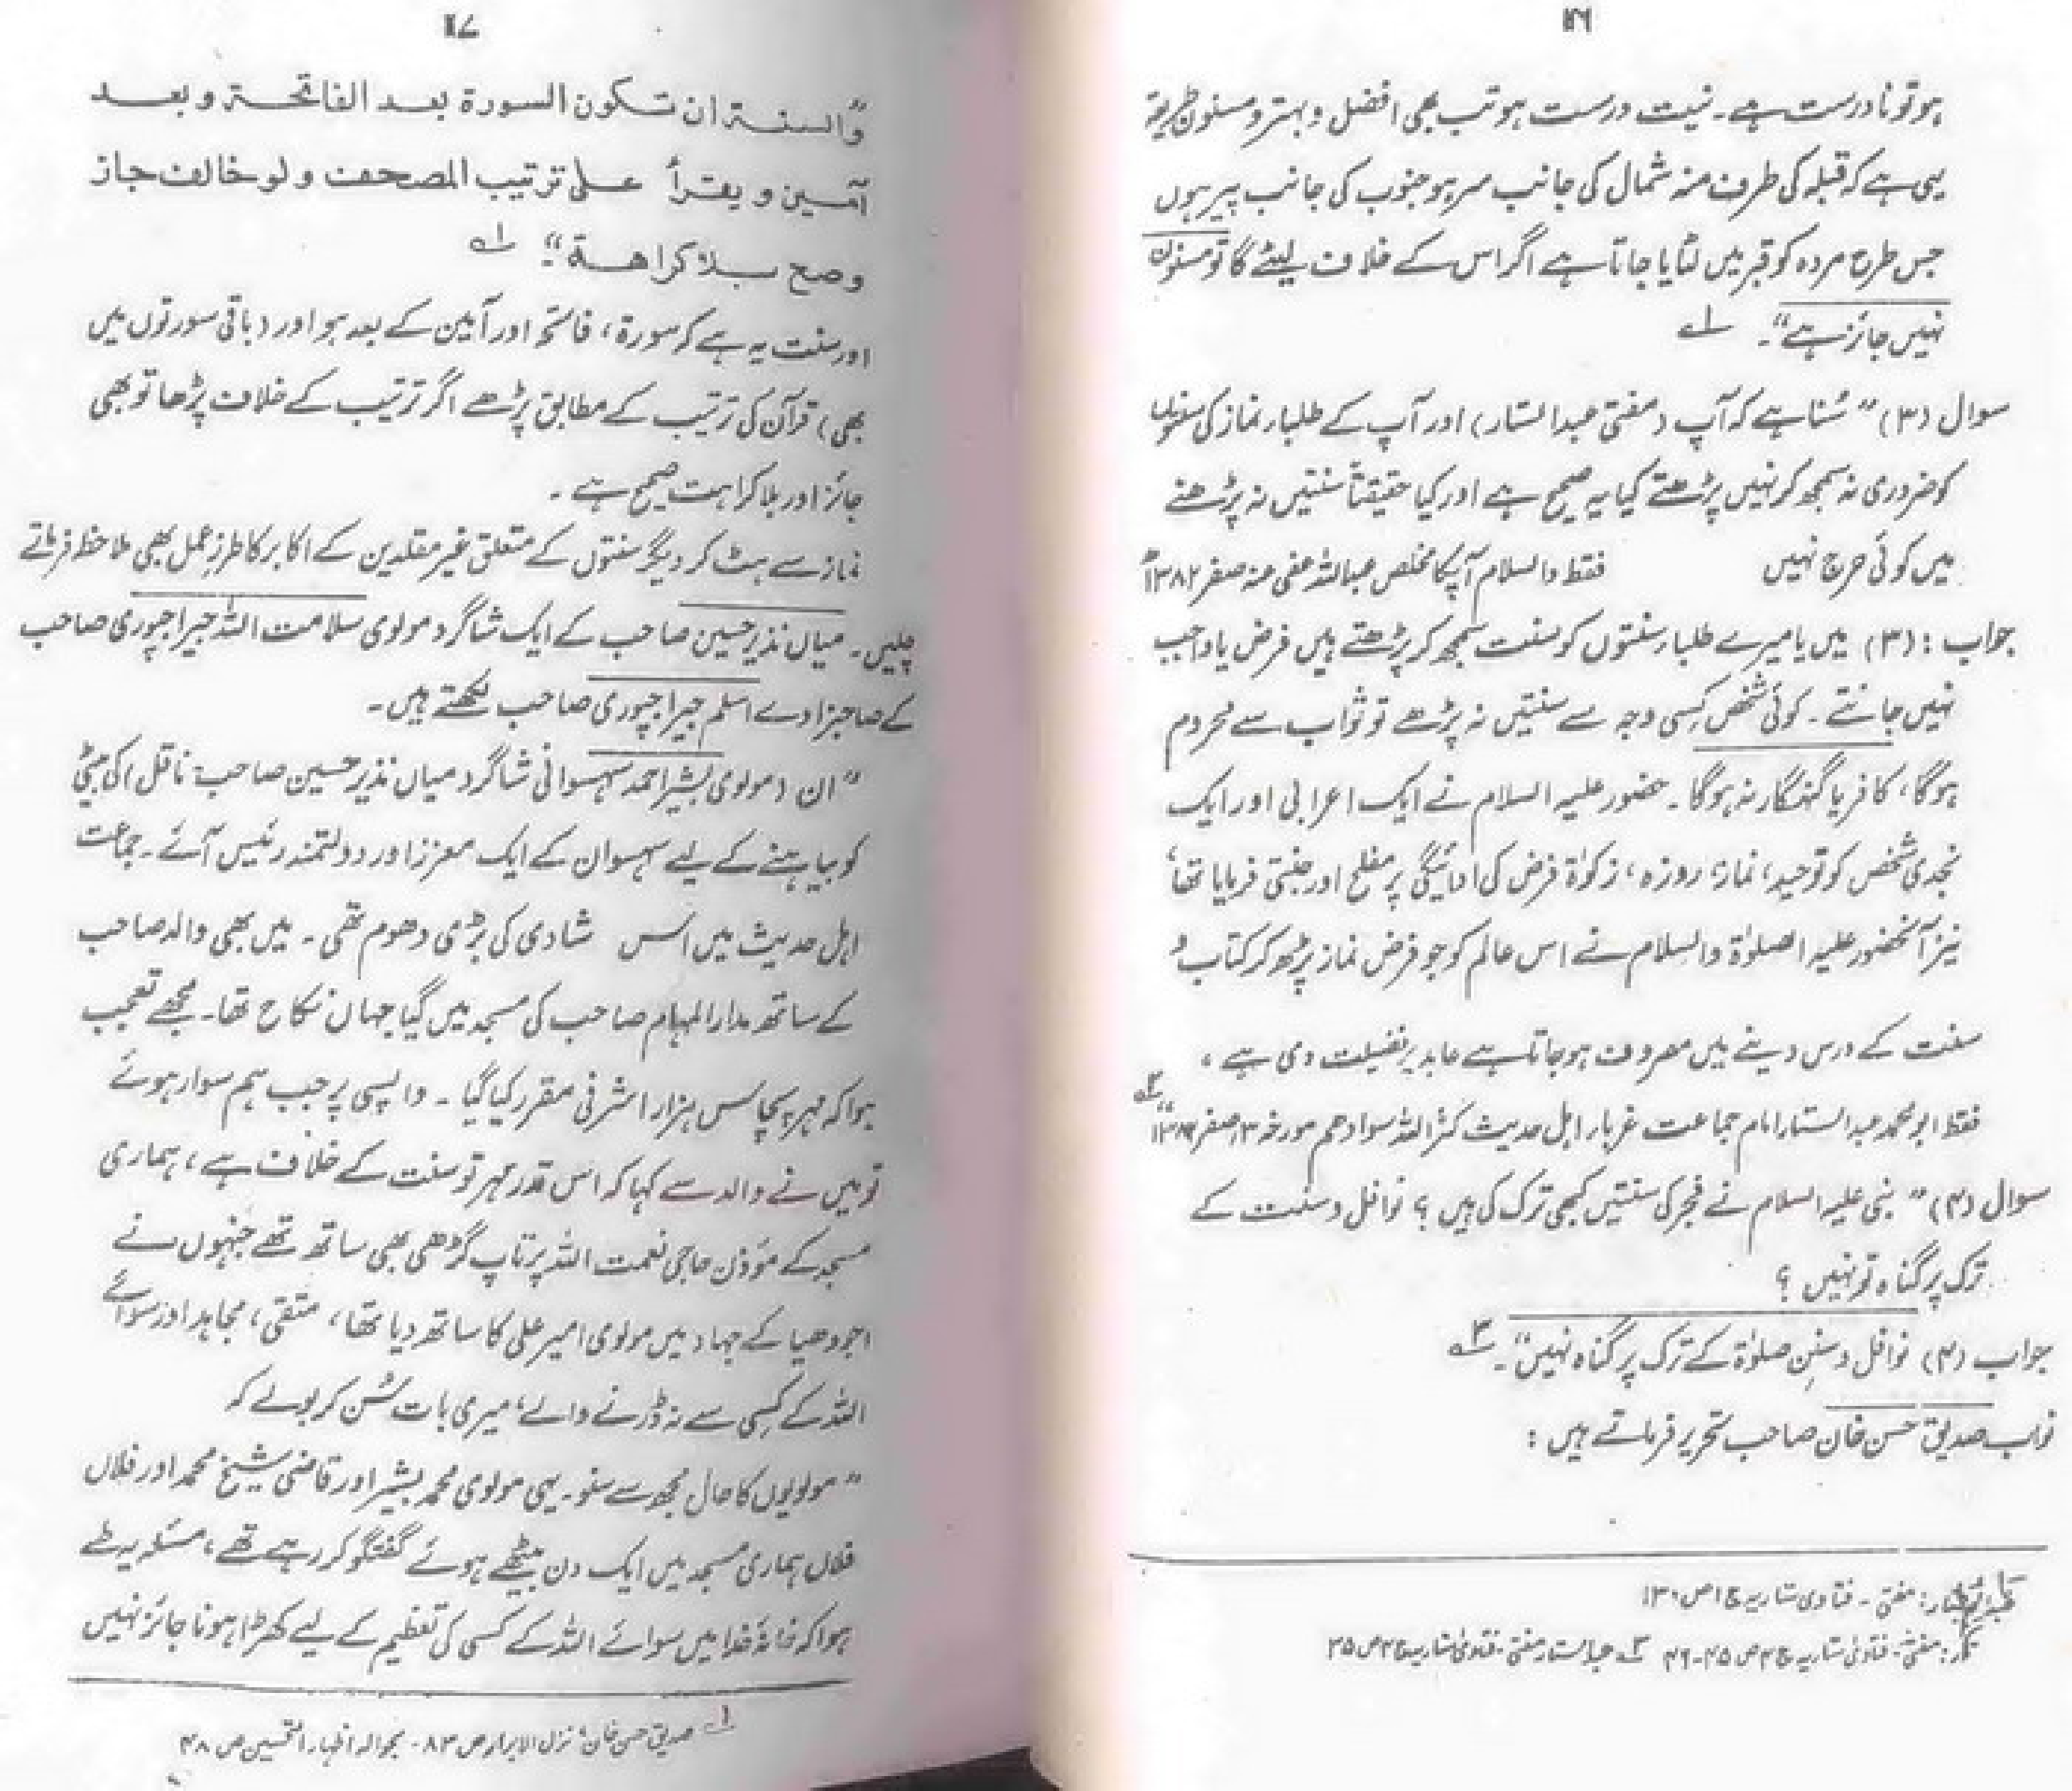 ۱۱۶
ہو تو نا درست ہے۔ نیت درست ہو تب بھی افضل و بہتر و مسنون طریقہ
یہی ہے کہ قبلہ کی طرف منہ شمال کی جانب سر ہو جنوب کی جانب پیر ہوں
جس طرح مردہ کو قبر میں لٹایا جاتا ہے اگر اس کے خلاف لیٹے گا تو مسنون
نہیں جائز ہے“۔ ۱؎
سوال (۳) ” سُنا ہے کہ آپ (مفتی عبدالستار) اور آپ کے طلبار نماز کی سنتوں
کو ضروری نہ سمجھ کر نہیں پڑھتے کیا یہ صحیح ہے اور کیا حقیقتاً سنتیں نہ پڑھنے
میں کوئی حرج نہیں فقط والسلام آپکا مخلص عبداللہ عفی عنہ صفر ۱۳۸۲ھ
جواب : (۳) میں یا میرے طلبار سنتوں کو سنت سمجھ کر پڑھتے ہیں فرض یا واجب
نہیں جانتے۔ کوئی شخص کسی وجہ سے سنتیں نہ پڑھے تو ثواب سے محروم
ہوگا، کافر یا گنہگار نہ ہوگا۔ حضور علیہ السلام نے ایک اعرابی اور ایک
نجدی شخص کو توحید، نماز، روزہ، زکوٰۃ فرض کی ادائیگی پر مفلح اور جنتی فرمایا تھا،
نیز آنحضور علیہ الصلوٰۃ والسلام نے اس عالم کو جو فرض نماز پڑھ کر کتاب و
سنت کے درس دینے میں مصروف ہو جاتا ہے عابد پر فضیلت دی ہے،
فقط ابو محمد عبدالستار امام جماعت غربار اہل حدیث کثر اللہ سوادھم مورخہ ۱۳ صفر ۱۳۸۲ھ“ ۲؎
سوال (۴) ” نبی علیہ السلام نے فجر کی سنتیں کبھی ترک کی ہیں؟ نوافل و سنت کے
ترک پر گناہ تو نہیں؟
جواب (۴) نوافل و سنن صلوٰۃ کے ترک پر گناہ نہیں“۔ ۳؎
نواب صدیق حسن خان صاحب تحریر فرماتے ہیں :
عبدالستار: مفتی۔ فتاوی ستاریہ ج ۱ ص ۱۳۰
مفتی۔ فتاویٰ ستاریہ ج ۴ ص ۴۵-۴۶ ۳؎ عبدالستار مفتی۔ فتاویٰ ستاریہ ج ۴ ص ۴۵
۱۱۷
”والسنة ان تكون السورة بعد الفاتحة و بعد
آمین و یقرأ علی ترتیب المصحف ولو خالف جاز
وصح بلا کراهة“۔ ۱؎
اور سنت یہ ہے کہ سورۃ، فاتحہ اور آمین کے بعد ہو اور (باقی سورتوں میں
بھی) قرآن کی ترتیب کے مطابق پڑھے اگر ترتیب کے خلاف پڑھا تو بھی
جائز اور بلا کراہت صحیح ہے۔
نماز سے ہٹ کر دیگر سنتوں کے متعلق غیر مقلدین کے اکابر کا طرز عمل بھی ملاحظہ فرماتے
چلیں۔ میاں نذیر حسین صاحب کے ایک شاگرد مولوی سلامت اللہ جیراجپوری صاحب
کے صاحبزادے اسلم جیراجپوری صاحب لکھتے ہیں۔
”ان (مولوی بشیر احمد سہسوانی شاگرد میاں نذیر حسین صاحب۔ ناقل) کی بیٹی
کو بیاہنے کے لیے سہسوان کے ایک معزز اور دولتمند رئیس آئے۔ جماعت
اہل حدیث میں اس شادی کی بڑی دھوم تھی۔ میں بھی والد صاحب
کے ساتھ مدار المہام صاحب کی مسجد میں گیا جہاں نکاح تھا۔ مجھے تعجب
ہوا کہ مہر پچاس ہزار اشرفی مقرر کیا گیا۔ واپسی پر جب ہم سوار ہوئے
تو میں نے والد سے کہا کہ اس قدر مہر تو سنت کے خلاف ہے، ہماری
مسجد کے مؤذن حاجی نعمت اللہ پرتاپ گڑھی بھی ساتھ تھے جنہوں نے
اجودھیا کے جہاد میں مولوی امیر علی کا ساتھ دیا تھا، متقی، مجاہد اور سوائے
اللہ کے کسی سے نہ ڈرنے والے، میری بات سُن کر بولے کہ
”مولویوں کا حال مجھ سے سنو۔ یہی مولوی محمد بشیر اور قاضی شیخ محمد اور فلاں
فلاں ہماری مسجد میں ایک دن بیٹھے ہوئے گفتگو کر رہے تھے، مسئلہ یہ طے
ہوا کہ خانۂ خدا میں سوائے اللہ کے کسی کی تعظیم کے لیے کھڑا ہونا جائز نہیں
۱؎ صدیق حسن خان: نزل الابرار ص ۸۳۔ بحوالہ اظہار التحسین ص ۴۸